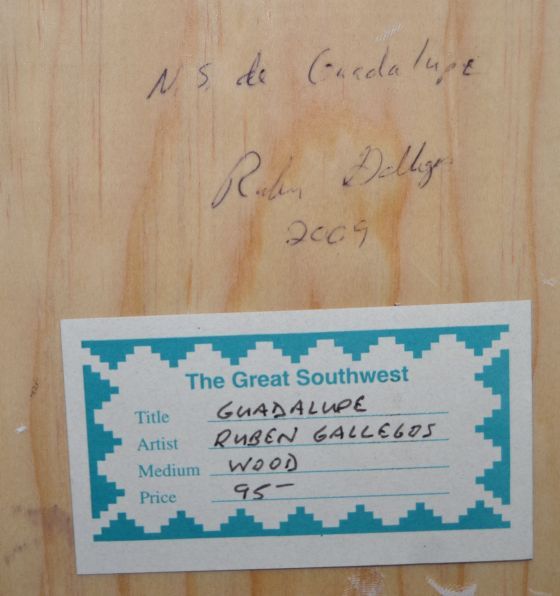 N S de Guadalupe
Ruben Gallegos
2009
The Great Southwest
Title GUADALUPE
Artist RUBEN GALLEGOS
Medium WOOD
Price 95—